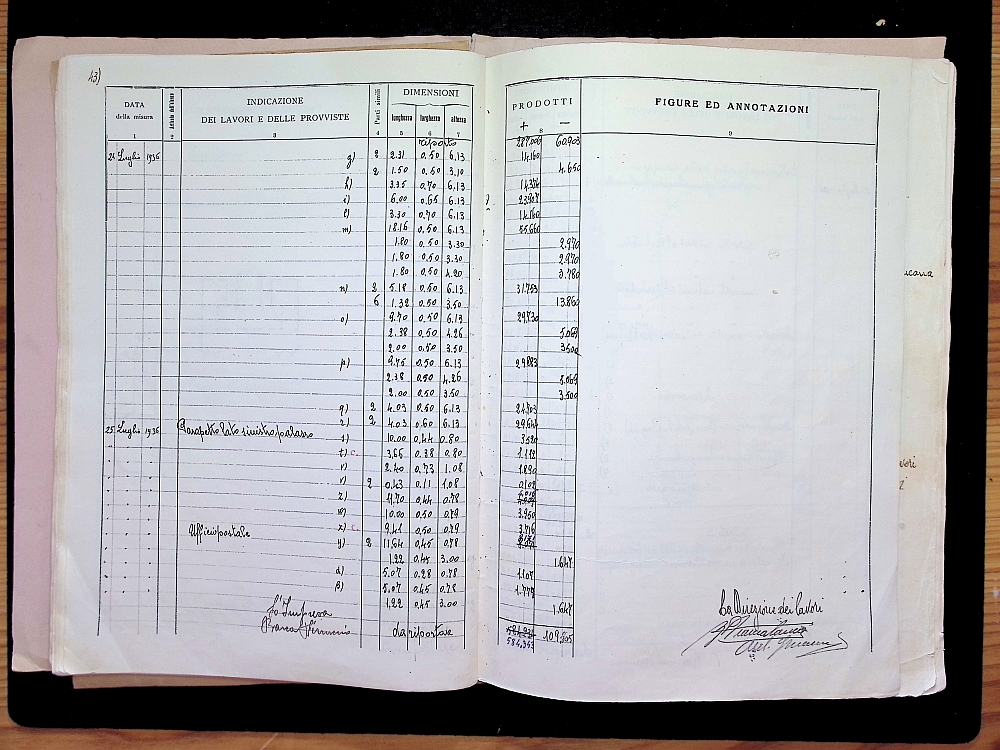 43)
DATA della misura INDICAZIONE DEI LAVORI E DELLE PROVVISTE Parti simili DIMENSIONI lunghezza larghezza altezza PRODOTTI + — FIGURE ED ANNOTAZIONI
1 2 3 4 5 6 7 8 9
riporto 287.000 60.903
24 Luglio 1936 g) 2 2.31 0.50 6.13 14.160
2 1.50 0.50 3.10 4.650
h) 3.35 0.70 6.13 14.374
i) 6.00 0.65 6.13 23.907
l) 3.30 0.70 6.13 14.160
m) 18.16 0.50 6.13 55.660
1.80 0.50 3.30 2.970
1.80 0.50 3.30 2.970
1.80 0.50 4.20 3.780
n) 2 5.18 0.50 6.13 31.753
6 1.32 0.50 3.50 13.860
o) 9.70 0.50 6.13 29.730
2.38 0.50 4.26 5.069
2.00 0.50 3.50 3.500
p) 9.75 0.50 6.13 29.883
2.38 0.50 4.26 5.069
2.00 0.50 3.50 3.500
q) 2 4.03 0.50 6.13 24.703
r) 2 4.03 0.60 6.13 29.644
25 Luglio 1936 Parapetto lato sinistro palazzo s) 10.00 0.44 0.80 3.520
" " " t) c. 3.66 0.38 0.80 1.112
" " " 2.40 0.73 1.08 1.890
" " " v) 2 0.43 0.11 1.08 0.102
" " " z) 11.70 0.44 0.78
" " " 10.00 0.50 0.79 3.950
" " " Ufficio postale x) c. 9.41 0.50 0.79 3.716
" " " y) 2 11.64 0.45 0.78
" " " 1.22 0.45 3.00 1.647
" " " α) 5.07 0.28 0.78 1.107
" " " β) 5.07 0.45 0.78 1.779
" " " 1.22 0.45 3.00 1.647
L'Impresa
da riportare 109.565
584.353
La Direzione dei lavori